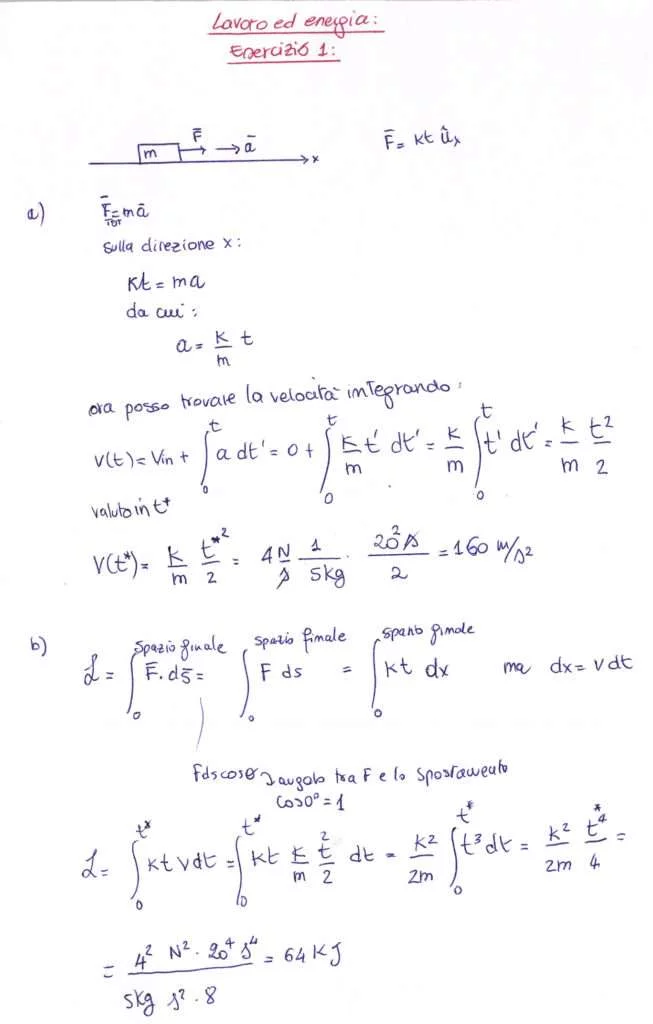 Lavoro ed energia:
Esercizio 1:
m F̄ → ā x
F̄ = kt ûₓ
a) F̄_TOT = mā
sulla direzione x:
kt = ma
da cui:
a = k/m t
ora posso trovare la velocità integrando:
v(t) = Vin + ∫₀ᵗ a dt' = 0 + ∫₀ᵗ k/m t' dt' = k/m ∫₀ᵗ t' dt' = k/m t²/2
valuto in t*
V(t*) = k/m t*²/2 = 4 N/s 1/5kg · 20² s/2 = 160 m/s²
b) L = ∫₀^spazio finale F̄·ds̄ = ∫₀^spazio finale F ds = ∫₀^spazio finale kt dx ma dx = v dt
F ds cosθ → angolo tra F e lo spostamento
cos0° = 1
L = ∫₀^t* kt v dt = ∫₀^t* kt k/m t²/2 dt = k²/2m ∫₀^t* t³ dt = k²/2m t*⁴/4 =
= 4² N² · 20⁴ s⁴ / 5kg s² · 8 = 64 KJ